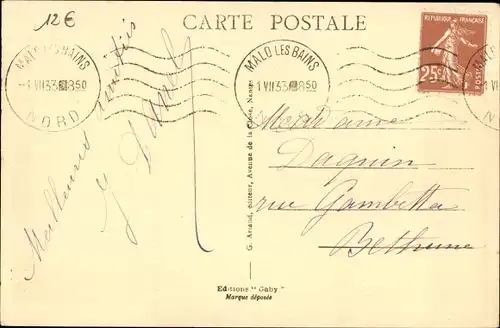 12€
CARTE POSTALE
MALO LES BAINS
-1 VII 33 8 50
NORD
MALO LES BAINS
-1 VII 33 8 50
REPUBLIQUE FRANÇAISE
25c
POSTES
Meilleures amitiés
G. Artaud, éditeur, Avenue de la Close, Nantes
Madame
Daquin
rue Gambetta
Bethune
Editions "Gaby"
Marque déposée